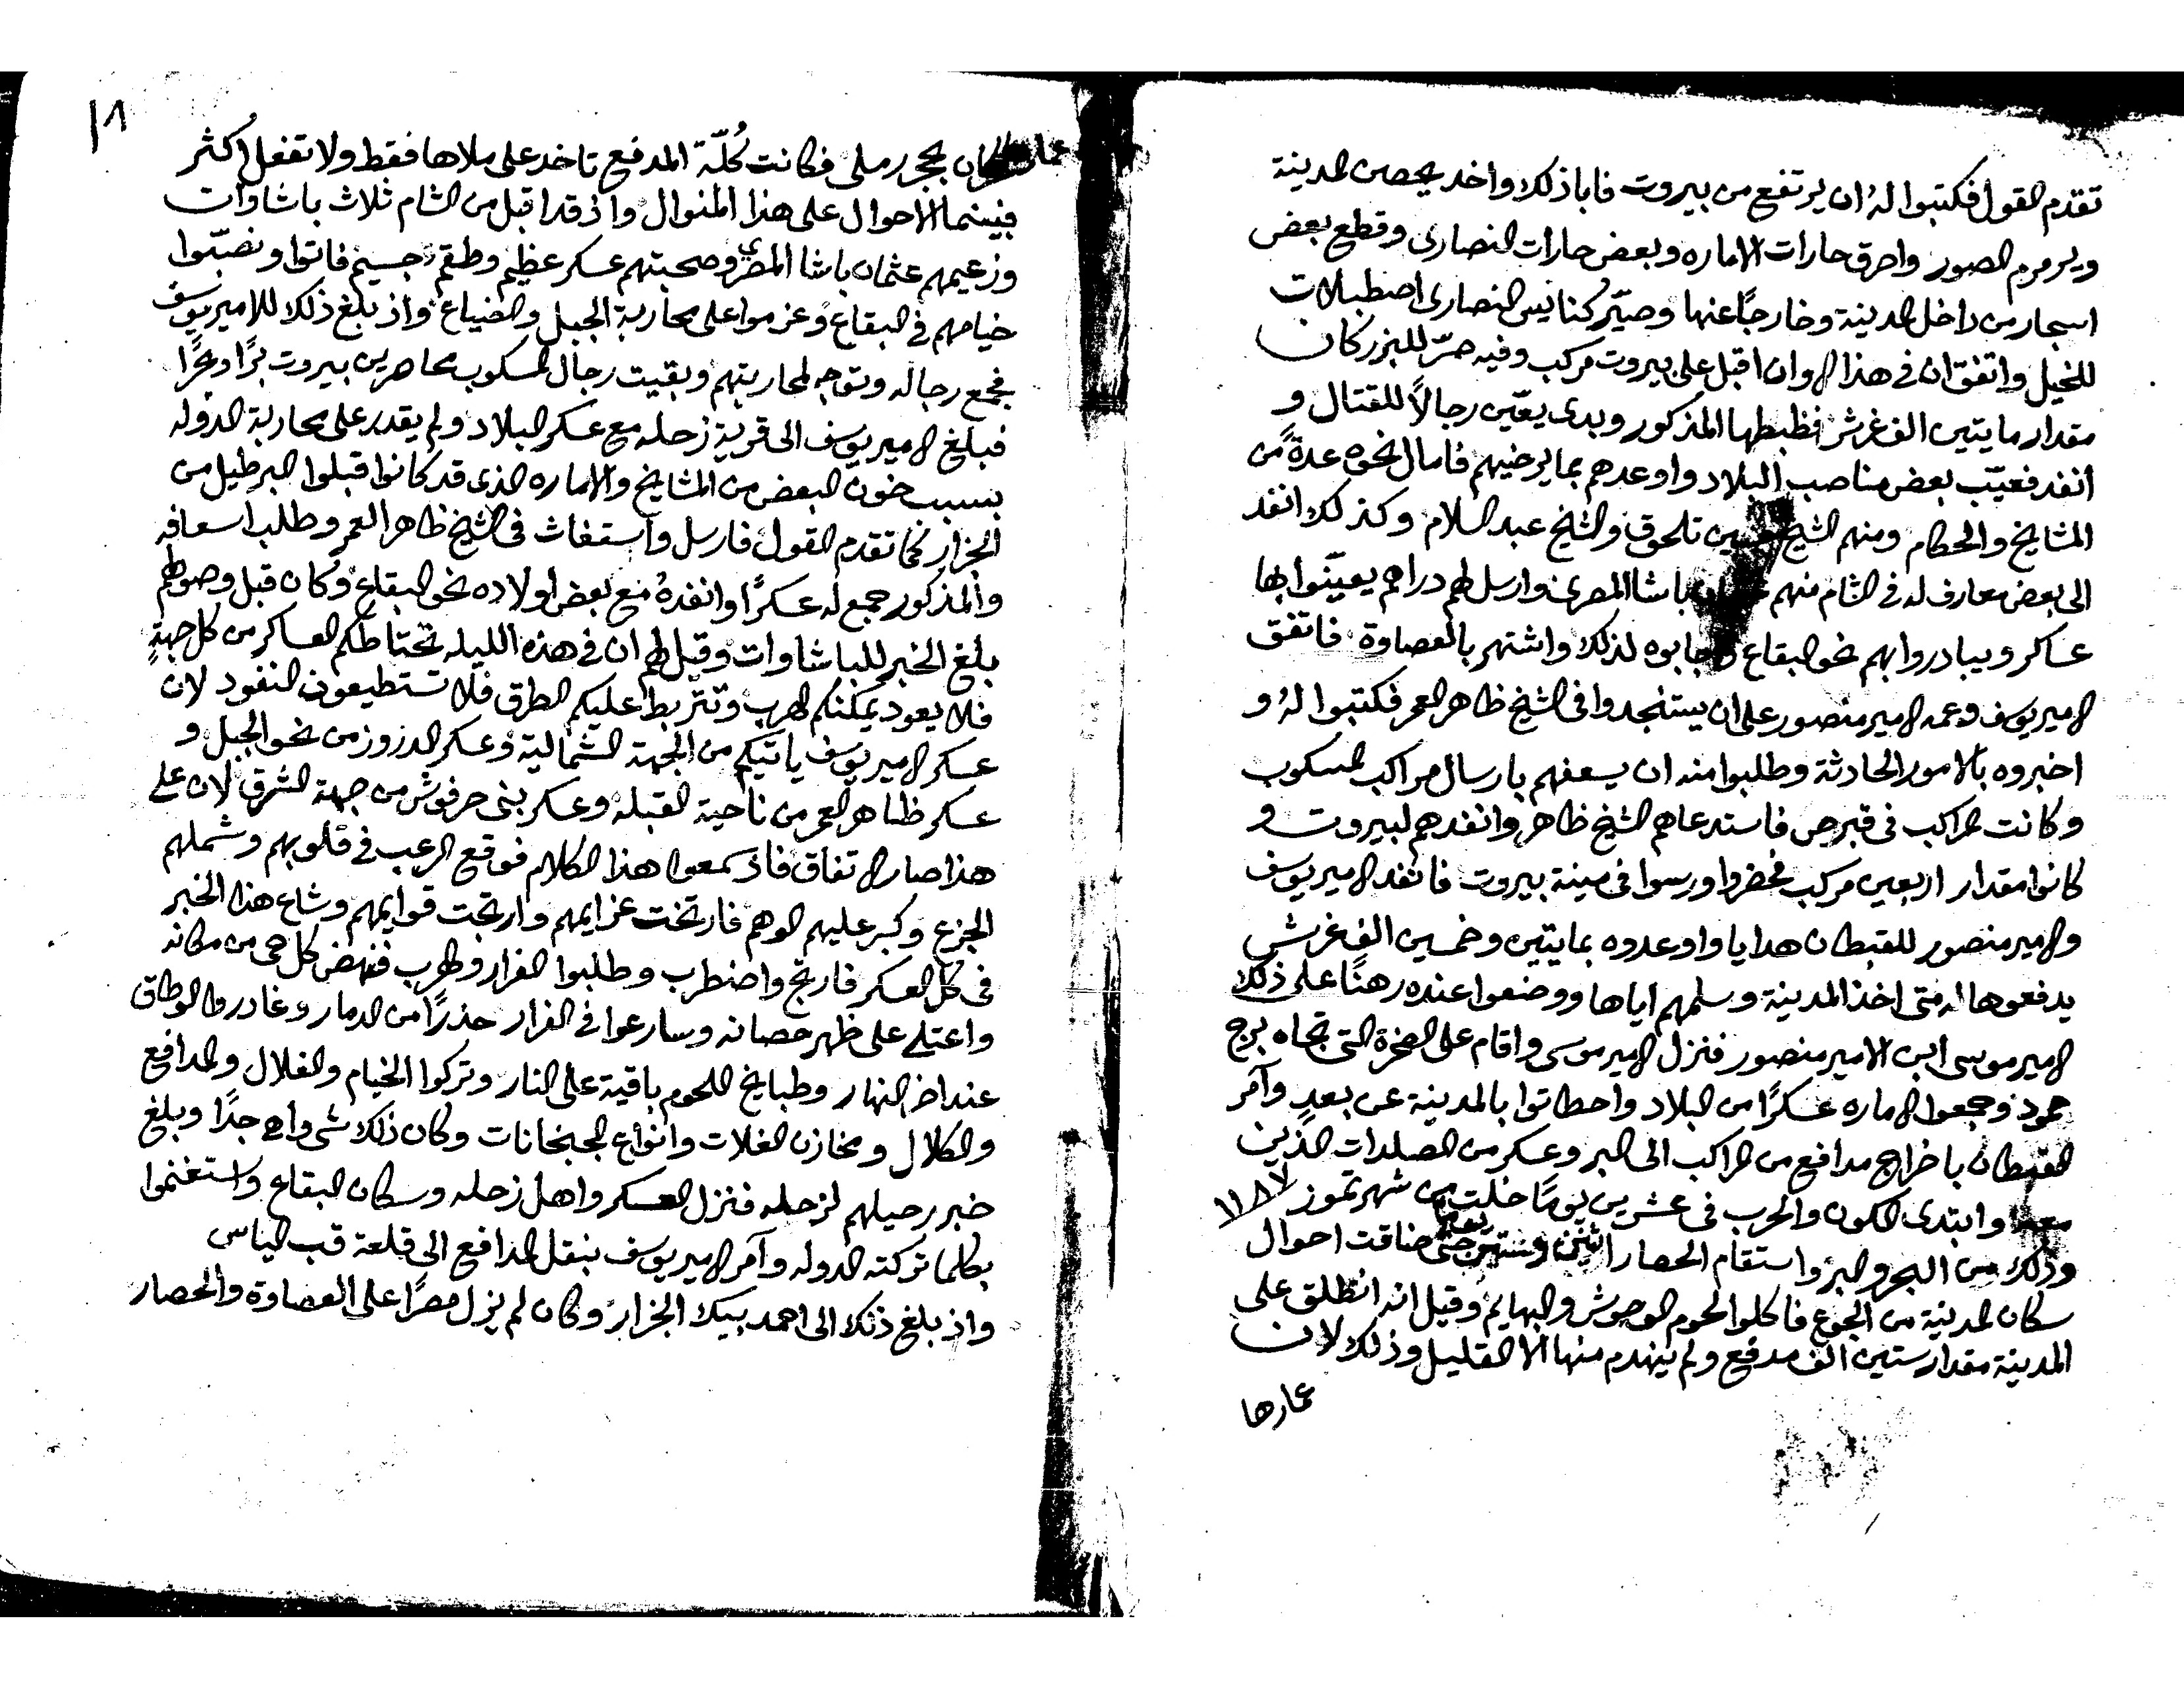 تقدم القول فكتبوا له ان يرتفع من بيروت فابا ذلك واخد يحصن المدينة
ويرمرم الصور واحرق حارات الاماره وبعض حارات النصارى وقطع بعض
اسجار من داخل المدينة وخارجًا عنها وصيّر كنايس النصارى اصطبلات
للخيل واتفق ان في هذا الاوان اقبل على بيروت مركب وفيه صرّ للبزركان
مقدار مايتين الف غرش فظبطها المذكور وبدى يعيّن رجالاً للقتال و
انفد فعيّب بعض مناصب البلاد واوعدهم بما يرضيهم فامال نحوه عدةً من
المشايخ والحكام ومنهم الشيخ تلحوق والشيخ عبد السلام وكذلك انفد
الى بعض معارف له في الشام منهم باشا المصري وارسل لهم دراهم يعيّنوا بها
عساكر ويبادروا بهم نحو البقاع فاجابوه لذلك واشتهر بالعصاوة فاتفق
الامير يوسف وعمه الامير منصور على ان يستنجدوا في الشيخ ظاهر العمر فكتبوا لهُ و
اخبروه بالامور الحادثة وطلبوا منه ان يسعفهم بارسال مراكب المسكوب
وكانت المراكب في قبرص فاستدعاهم الشيخ ظاهر وانفدهم لبيروت و
كانوا مقدار اربعين مركب فحضروا ورسوا في مينة بيروت فانفد الامير يوسف
والامير منصور للقبطان هدايا واوعدوه بمايتين وخمسين الف غرش
يدفعوها له متى اخذ المدينة وسلمهم اياها ووضعوا عنده رهنًا على ذلك
الامير موسى ابن الامير منصور فنزل الامير موسى واقام على الصخرة التي تجاه برج
حمود وجمعوا الاماره عسكرًا من البلاد واحطاتوا بالمدينة عن بعدٍ وآمر
القبطان باخراج مدافع من المراكب الى البر وعسكر من الصلدات الذين
معه وابتدى الكون والحرب في عشرين يومًا خلت من شهر تموز ١١٨٧
وذلك من البحر والبر واستقام الحصار اثنين حتى ضاقت احوال
سكان المدينة من الجوع فاكلوا لحوم الوحوش والبهايم وقيل انه انطلق على
المدينة مقدار ستين الف مدفع ولم ينهدم منها الا القليل وذلك لان
عمارها
١٨
عمارها كان بحجر رملي فكانت كُلّة المدفع تاخد على ملاها فقط ولا تفعل اكثر
فبينما الاحوال على هذا المنوال واذ قد اقبل من الشام ثلاث باشاوات
وزعيمهم عثمان باشا المصري وصحبتهم عسكر عظيم وطقم جسيم فاتوا ونصبّوا
خيامهم في البقاع وعزموا على محاربة الجبل والضياع واذ بلغ ذلك للامير يوسف
فجمع رجاله وتوجه لمحاربتهم وبقيت رجال المسكوب محاصرين بيروت برًا وبحرًا
فبلغ الامير يوسف الى قرية زحله مع عسكر البلاد ولم يقدر على محاربة الدوله
بسبب خون البعض من المشايخ والاماره الذي قد كانوا قبلوا البرطيل من
الجزار كما تقدم القول فارسل واستغاث في الشيخ ظاهر العمر وطلب اسعافه
والمذكور جمع له عسكرًا وانفدهُ مع بعض اولاده نحو البقاع وكان قبل وصولهم
بلغ الخبر للباشاوات وقيل لهم ان في هذه الليله تحتاطكم العساكر من كل جهةٍ
فلا يعود يمكنكم الهرب وتتربط عليكم الطرق فلا تستطيعون النفود لان
عسكر الامير يوسف ياتيكم من الجهة الشمالية وعسكر الدروز من نحو الجبل و
عسكر ظاهر العمر من ناحية القبله وعسكر بني حرفوش من جهة الشرق لان على
هذا صار الاتفاق فاذ سمعوا هذا الكلام فوقع الرعب في قلوبهم وشملهم
الجزع وكبر عليهم الوهم فارتخت عزايمهم وارتجت قوايمهم وشاع هذا الخبر
في كل العسكر فارتج واضطرب وطلبوا الفرار والهرب فنهض كل حي من مكانه
واعتلى على ظهر حصانه وسارعوا في الفرار حذرًا من الدمار وغادروا الوطاق
عند اخر النهار وطبايخ اللحوم باقية على النار وتركوا الخيام والغلال والمدافع
والكلال ومخازن الغلات وانواع الجبخانات وكان ذلك شي وافر جدًا وبلغ
خبر رحيلهم لزحله فنزل العسكر واهل زحله وسكان البقاع واستغنموا
بكلما تركته الدوله وآمر الامير يوسف بنقل المدافع الى قلعة قب الياس
واذ بلغ ذلك الى احمد بيك الجزار وكان لم يزل مصرًا على العصاوة والحصار